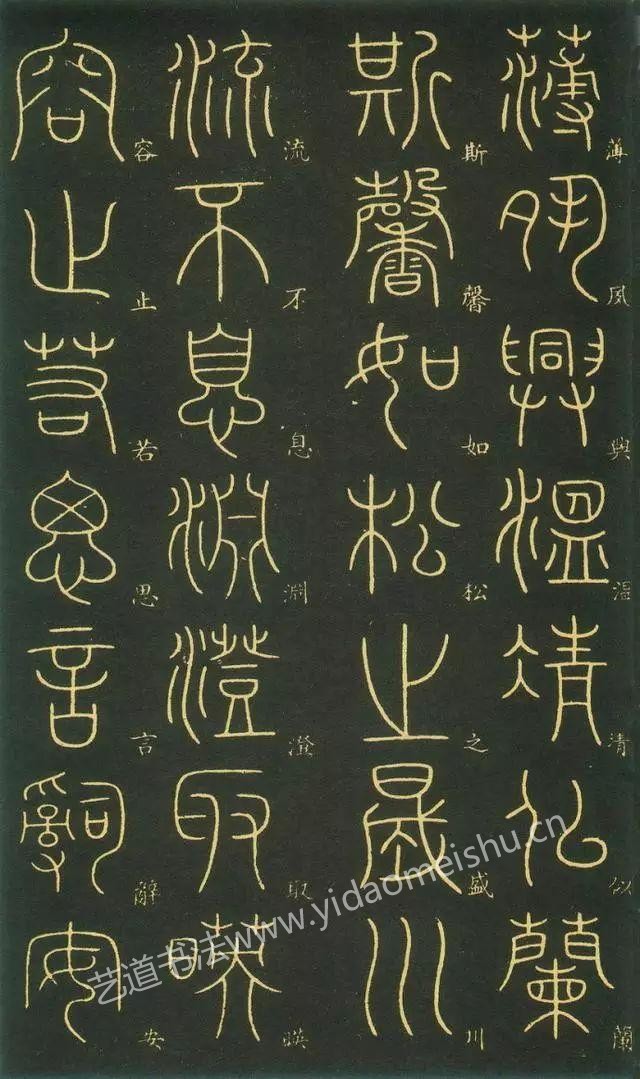 薄夙興温清似蘭
斯馨如松之盛川
流不息淵澄取暎
容止若思言辭安
艺道书法www.yidaomeishu.cn